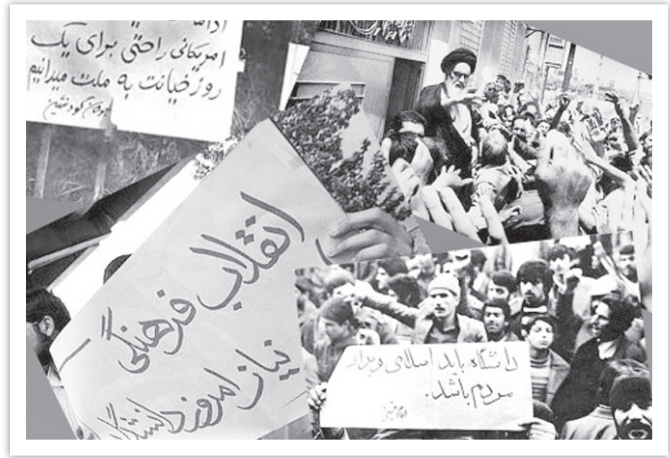 ادامه
امریکائی راحتی برای یک
روز خیانت به ملت میدانیم
انقلاب فرهنگی
نیاز امروز دانشگاه
دانشگاه باید اسلامی و برای
مردم باشد.
امام خمینی